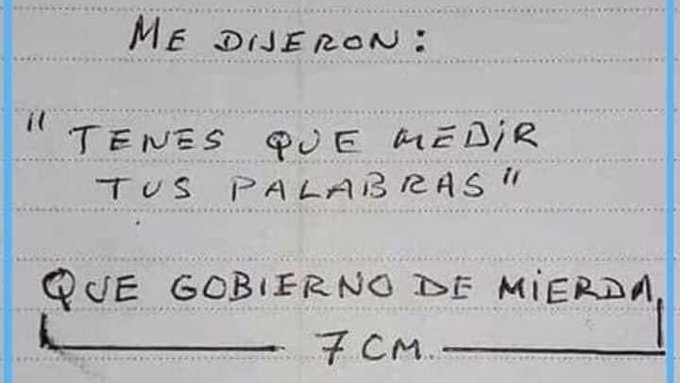 ME DIJERON:
"TENES QUE MEDIR
TUS PALABRAS"
QUE GOBIERNO DE MIERDA
7 CM.